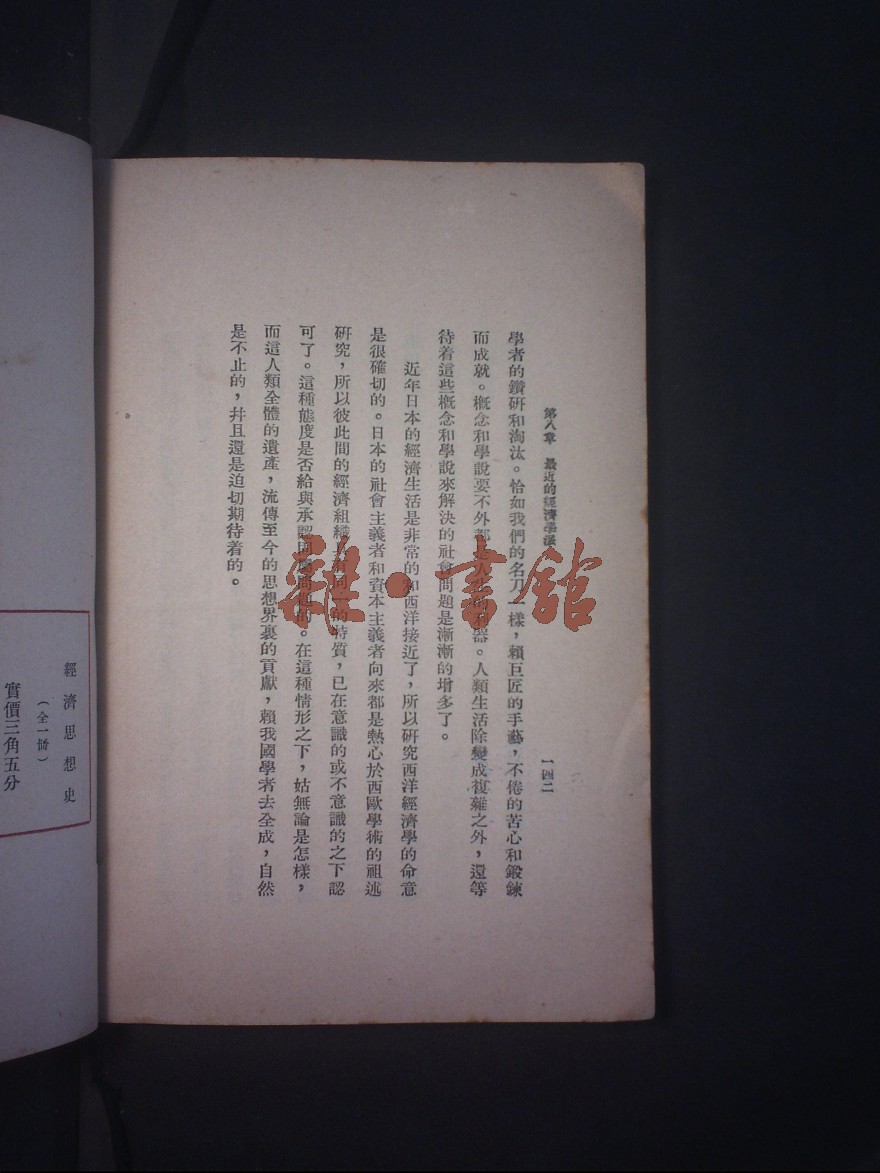 第八章 最近的經濟學派
一四二
學者的鑽研和淘汰。恰如我們的名刀一樣，賴巨匠的手藝，不倦的苦心和鍛鍊
而成就。概念和學說要不外都是人生的利器。人類生活除變成複雜之外，還等
待着這些概念和學說來解決的社會問題是漸漸的增多了。
近年日本的經濟生活是非常的和西洋接近了，所以研究西洋經濟學的命意
是很確切的。日本的社會主義者和資本主義者向來都是熱心於西歐學術的祖述
研究，所以彼此間的經濟組織上有同一的特質，已在意識的或不意識的之下認
可了。這種態度是否給與承認問屬問題的。在這種情形之下，姑無論是怎樣，
而這人類全體的遺產，流傳至今的思想界裏的貢獻，賴我國學者去全成，自然
是不止的，幷且還是迫切期待着的。
經濟思想史
（全一冊）
實價三角五分
雜·書館